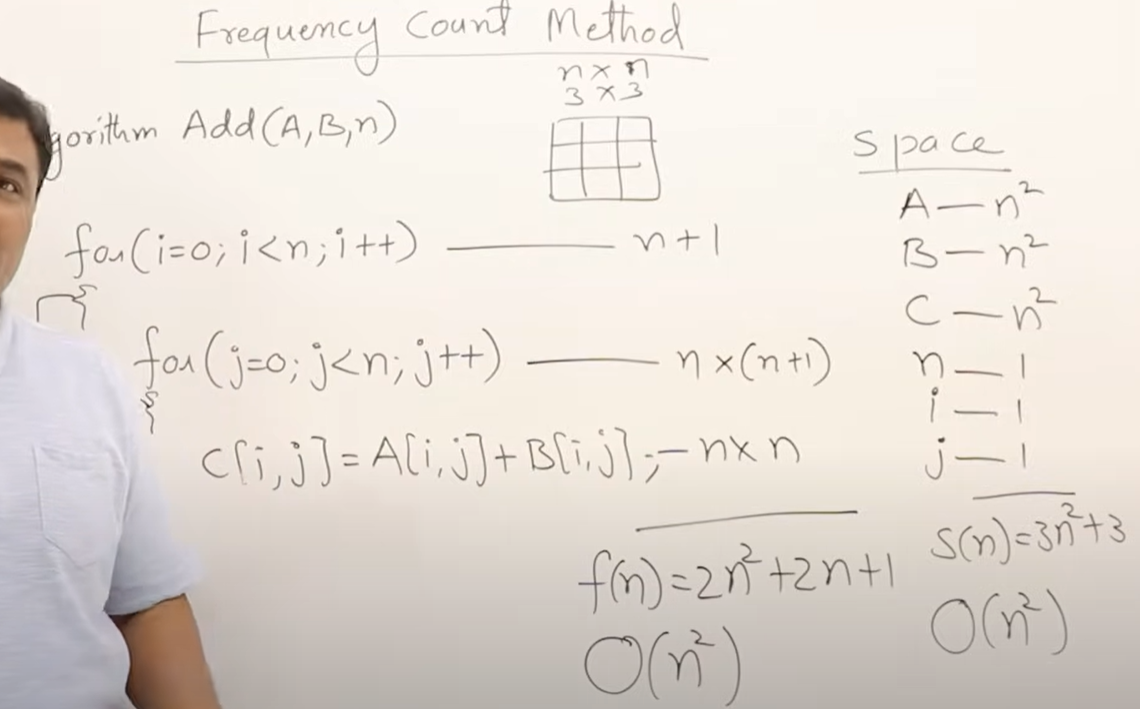 Frequency Count Method
n × n
3 × 3
gorithm Add(A,B,n)
for(i=0; i<n; i++) —— n+1
{
for(j=0; j<n; j++) —— n×(n+1)
{
C[i,j]=A[i,j]+B[i,j]; — n×n
f(n)=2n²+2n+1
O(n²)
Space
A — n²
B — n²
C — n²
n — 1
i — 1
j — 1
S(n)=3n²+3
O(n²)